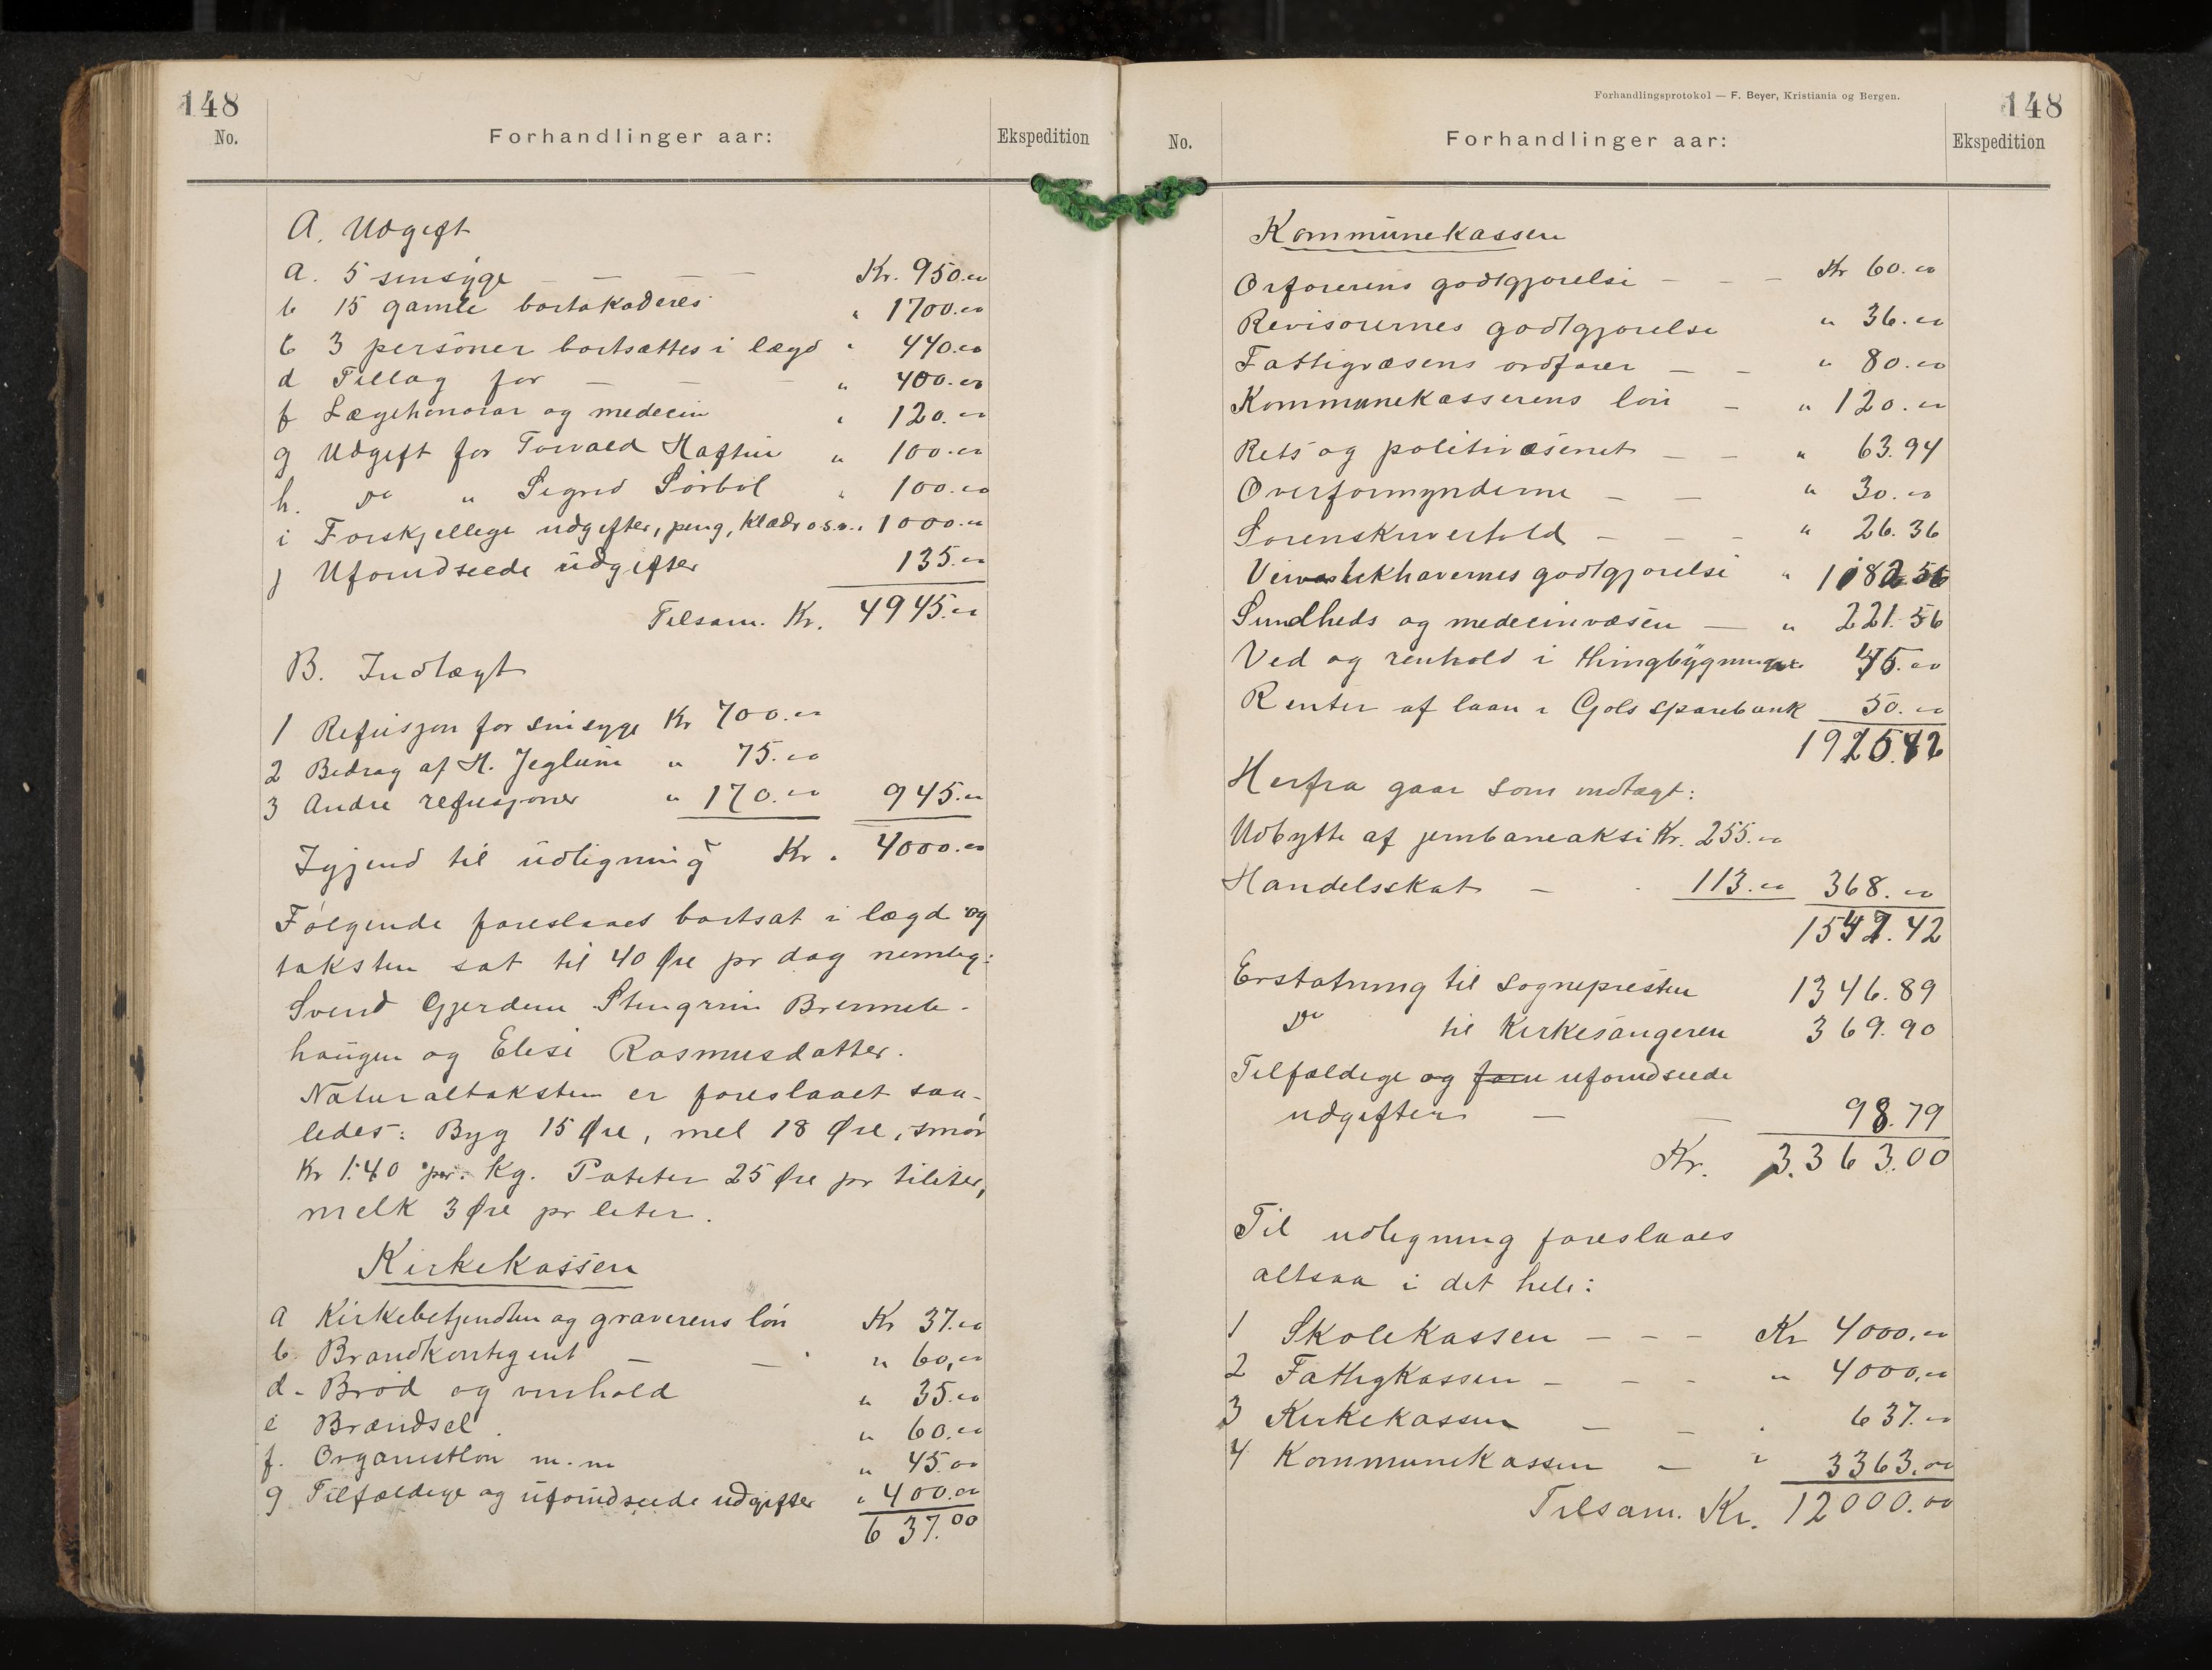 148
No.
Forhandlinger aar:
Ekspedition
A. Udgift
a. 5 sinsyge — — — Kr. 950.00
b 15 gamle bortakoderes " 1700.00
c 3 personer bortsættes i lægd " 440.00
d Tillæg for — — — " 400.00
f Lægehonorar og medecin " 120.00
g Udgift for Torvald Haftun " 100.00
h. Do " Sigrid Sørbøl " 100.00
i Forskjellige udgifter, peng, klæder o.s.v. 1000.00
j Uforudseede udgifter 135.00
Tilsam. Kr. 4945.00
B. Indtægt
1 Refusjon for sinsyge Kr 700.00
2 Bedrag af H. Jeglum " 75.00
3 Andre refusjoner " 170.00 945.00
Igjend til udligning Kr. 4000.00
Følgende foreslaaes bortsat i lægd og
taksten sat til 40 Øre pr dag nemlig:
Svend Gjerdene Stengrim Brenneb-
haugen og Elisi Rasmusdatter.
Naturaltaksten er foreslaaet saa-
ledes: Byg 15 Øre, mel 18 Øre, smør
Kr 1.40 per. kg. Poteter 25 Øre pr tiliter,
melk 3 Øre pr liter.
Kirkekassen
a Kirkebetjendten og graverens løn Kr 37.00
b. Brandkontigent — — " 60,00
d. Brød og vinhold " 35.00
e Brændsel " 60.00
f. Organistløn m.m " 45.00
g Tilfældige og uforudseede udgifter " 400.00
637.00
Forhandlingsprotokol — F. Beyer, Kristiania og Bergen.
148
No.
Forhandlinger aar:
Ekspedition
Kommunekassen
Orførerens godtgjørelse — — — Kr 60.00
Revisorernes godtgjørelse " 36.00
Fattigvæsens ordfører — — " 80.00
Kommunekassererens løn — " 120.00
Rets og politivæsenet — — " 63.94
Overformynderne — — " 30.00
Sorenskriverhold — — — " 26.36
godtgjørelse " 1182.56
Sundheds og medecinvæsen — " 221.56
Ved og renhold i thingbygningen 45.00
Renter af laan i Gols sparebank 50.00
1925.42
Herfra gaar som indtægt:
Udbytte af jernbaneaksi Kr. 255.00
Handelsskat — 113.00 368.00
1547.42
Erstatning til sognepresten 1346.89
Do til Kirkesangeren 369.90
Tilfældige og uforudseede
udgifter — — 98.79
Kr. 3.363.00
Til udligning foreslaaes
altsaa i det hele:
1 Skolekassen — — — Kr 4000.00
2 Fattigkassen — — — " 4000.00
3 Kirkekassen — — . 637.00
4 Kommunekassen — " 3363.00
Tilsam. Kr. 12000.00